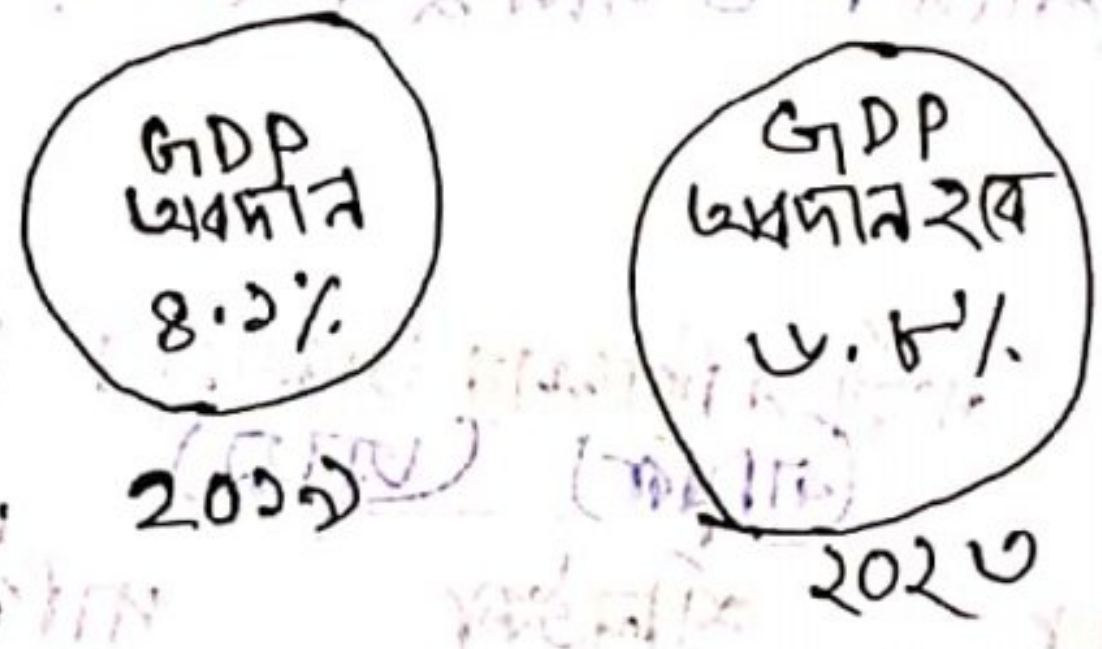 GDP
অবদান
৪.১%
২০১৯
GDP
অবদান হবে
৬.৮%
২০২৩